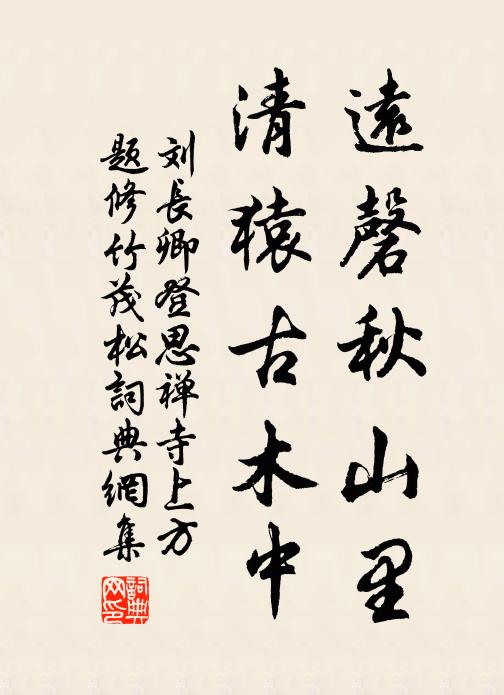 遠磬秋山里
清猿古木中
刘長卿登思禅寺上方
题修竹茂松詞典網集
詞典網印